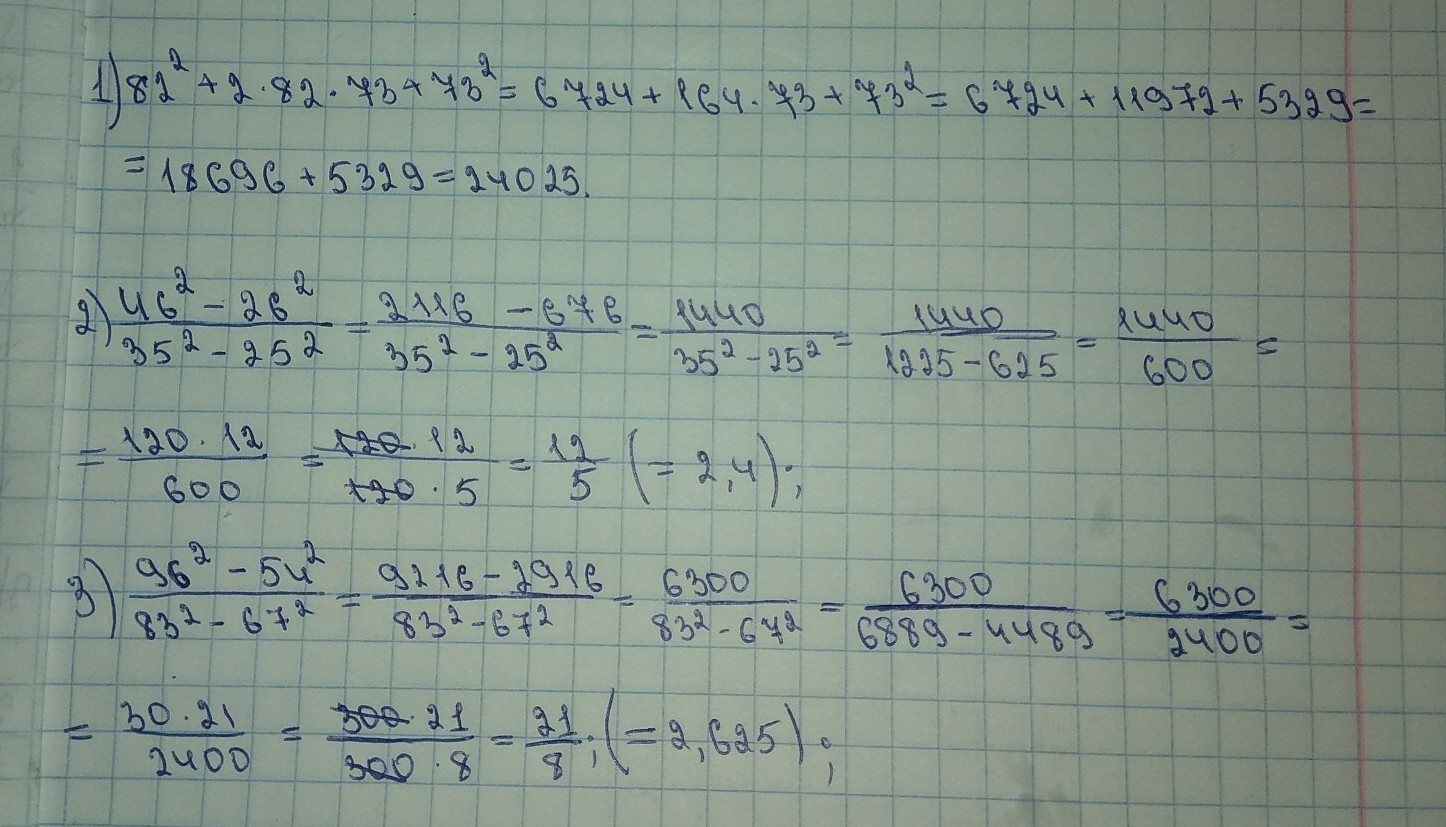 1) 82² + 2·82·73 + 73² = 6724 + 164·73 + 73² = 6724 + 11972 + 5329 =
= 18696 + 5329 = 24025.
2) (46² - 26²)/(35² - 25²) = (2116 - 676)/(35² - 25²) = 1440/(35² - 25²) = 1440/(1225 - 625) = 1440/600 =
= (120·12)/600 = (120·12)/(120·5) = 12/5 (= 2,4);
3) (96² - 54²)/(83² - 67²) = (9216 - 2916)/(83² - 67²) = 6300/(83² - 67²) = 6300/(6889 - 4489) = 6300/2400 =
= (30·21)/2400 = (300·21)/(300·8) = 21/8; (= 2,625);